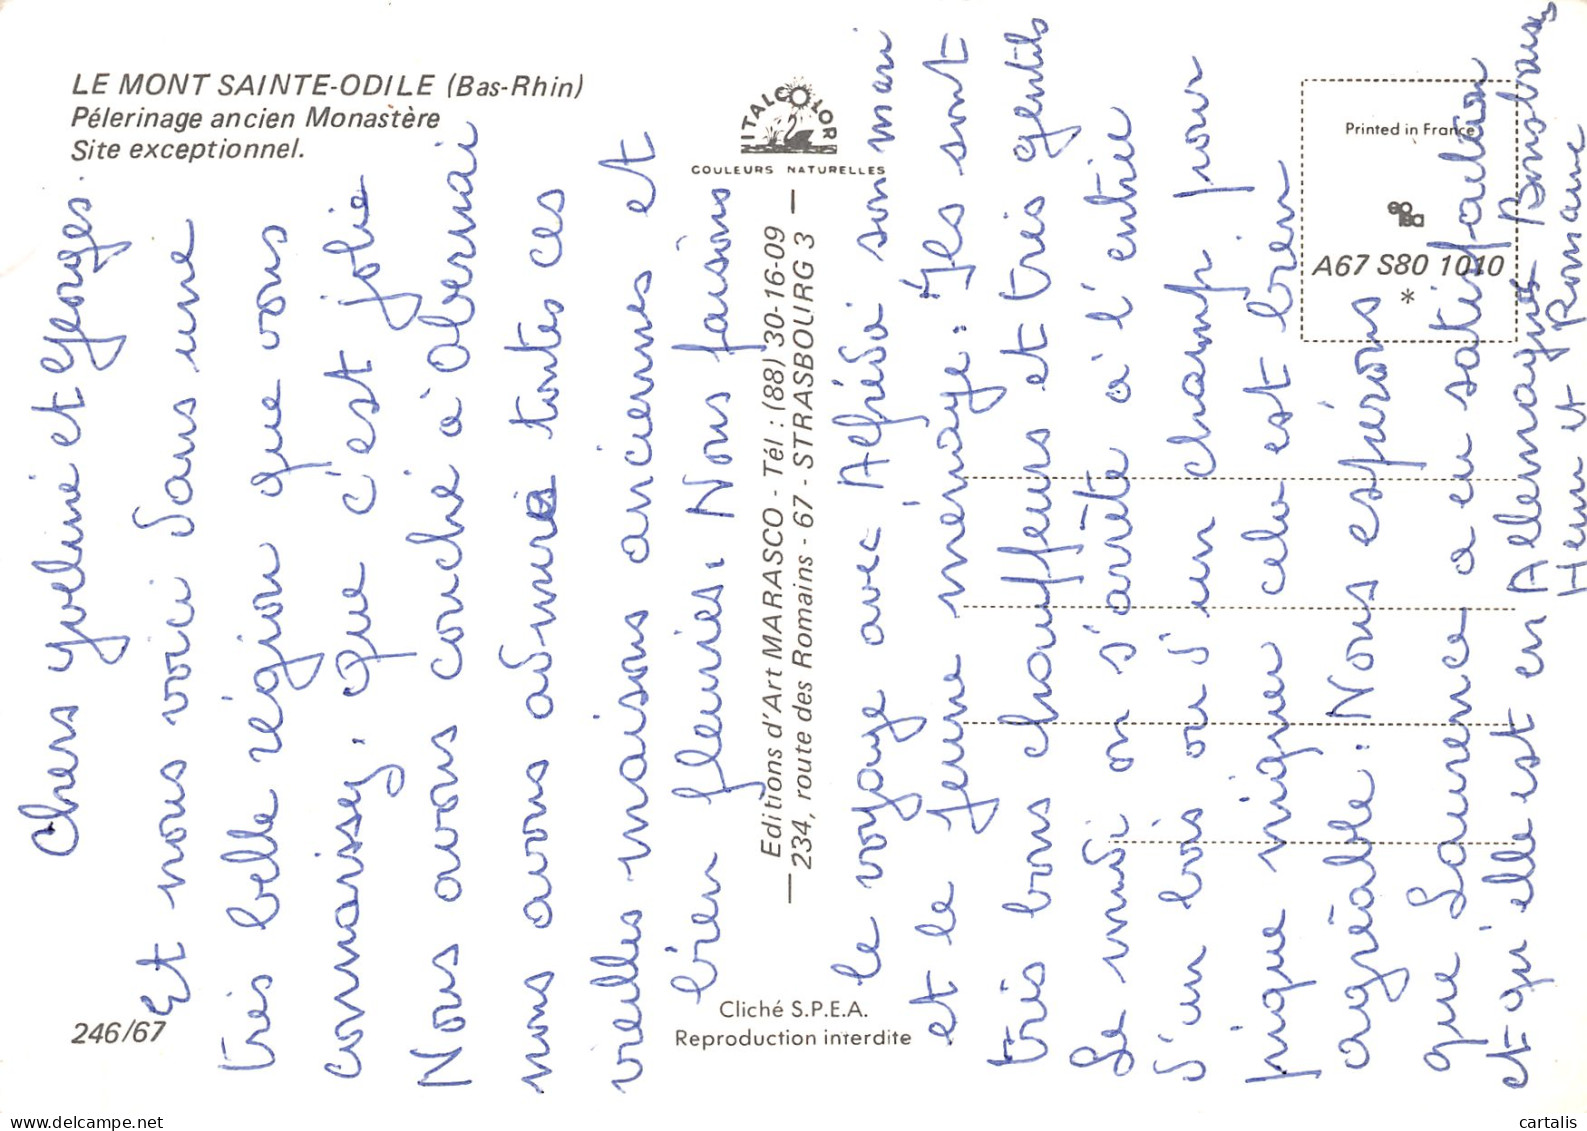 LE MONT SAINTE-ODILE (Bas-Rhin)
Pélerinage ancien Monastère
Site exceptionnel.
ITALCOLOR
COULEURS NATURELLES
Printed in France
A67 S80 1010
*
Editions d'Art MARASCO - Tél : (88) 30-16-09
234, route des Romains - 67 - STRASBOURG 3
246/67
Cliché S.P.E.A.
Reproduction interdite
Chers Yveline et Georges.
Et nous voici dans une
très belle région que vous
connaissez, que c'est jolie
Nous avons couché à Obernai
nous avons admiré toutes ces
vieilles maisons anciennes et
bien fleuries. Nous faisons
le voyage avec Alfréda son mari
et le jeune menage. Ils sont
très bons chauffeurs et très gentils
Le midi on s'arrête à l'entrée
d'un bois ou d'un champ pour
pique niquer cela est bien
agréable. Nous espérons
que Laurence a eu satisfaction
et qu'elle est en Allemagne
et Romane
cartalis